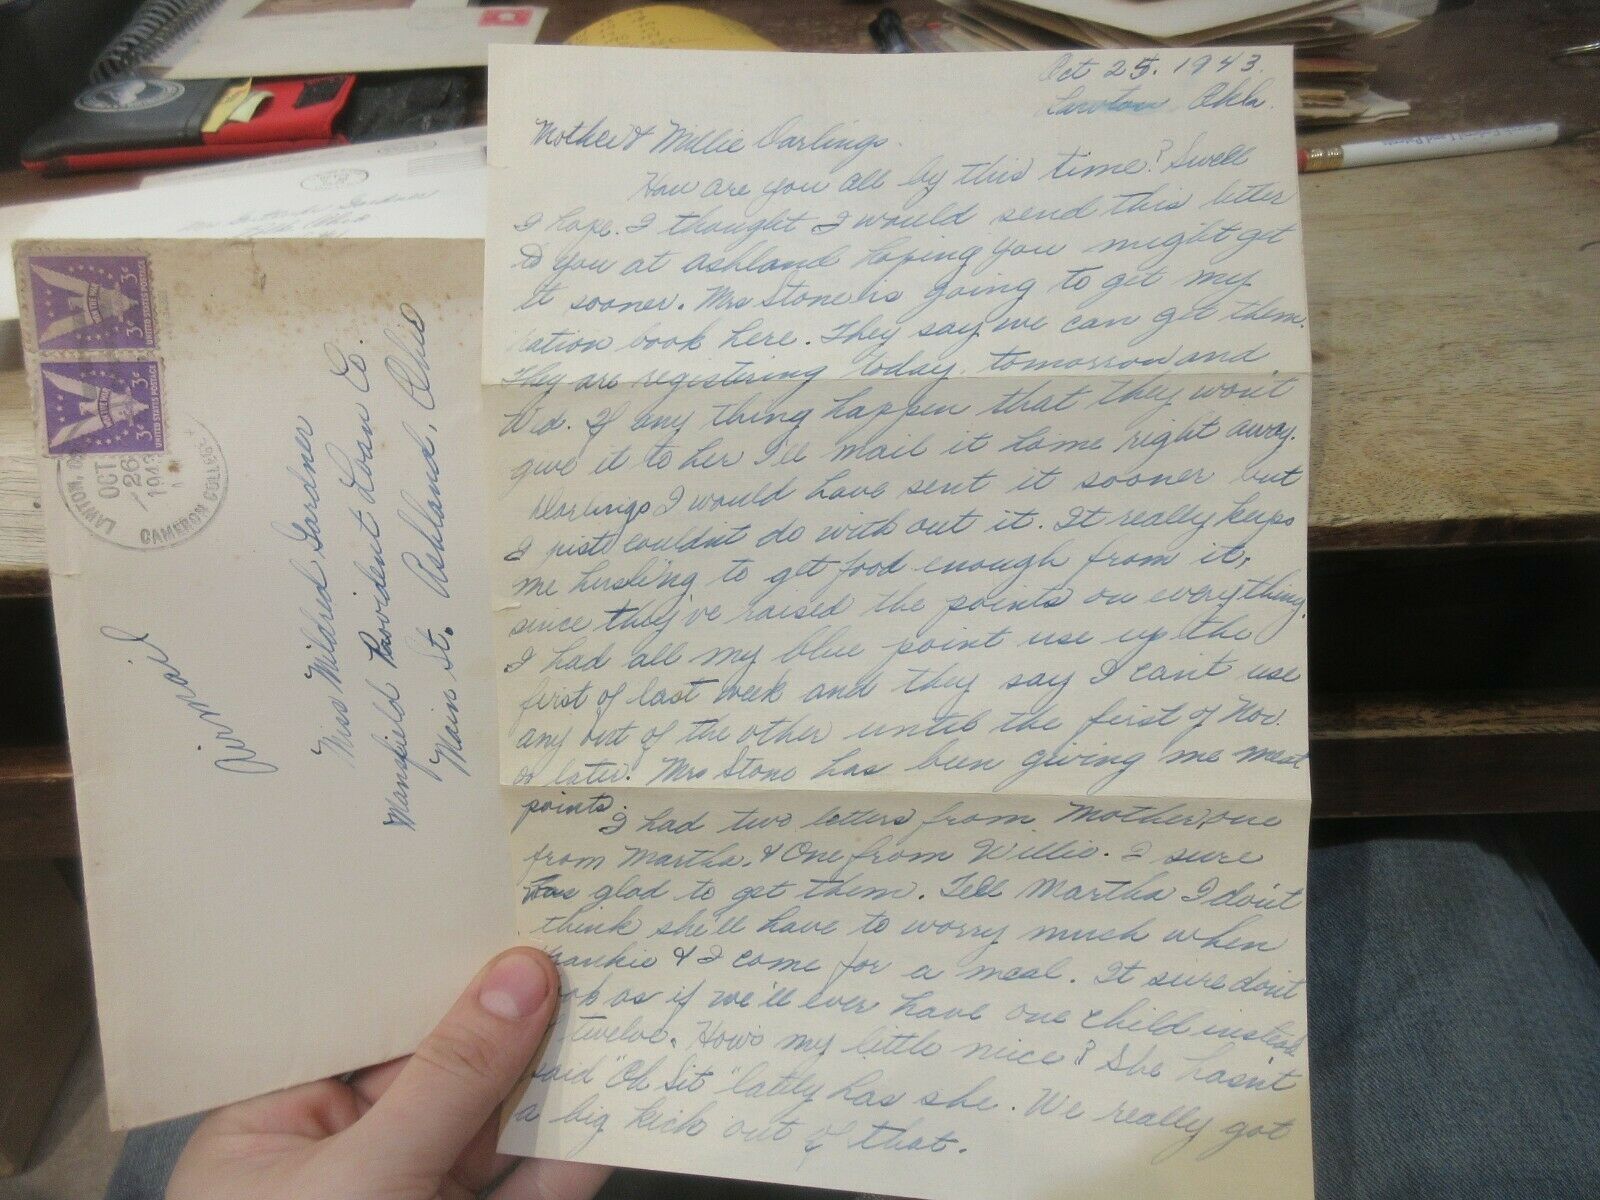 Oct 25. 1943.
Lawton Okla.
Mother & Millie Darlings.
How are you all by this time? Swell
I hope. I thought I would send this letter
to you at Ashland hoping you might get
it sooner. Mrs Stone is going to get my
ration book here. They say we can get them.
They are registering today, tomorrow and
Wed. If any thing happen that they won't
give it to her I'll mail it home right away.
Darlings I would have sent it sooner but
I just couldn't do with out it. It really keeps
me hustling to get food enough from it,
since they've raised the points on everything.
I had all my blue point use up the
first of last week and they say I can't use
any out of the other until the first of Nov.
or later. Mrs Stone has been giving me meat
points.
I had two letters from Mother, one
from Martha, & One from Willie. I sure
was glad to get them. Tell Martha I don't
think she'll have to worry much when
Frankie & I come for a meal. It sure don't
look as if we'll ever have one child instead
twelve. Hows my little niece? She hasn't
said "Oh Sit" lately has she. We really got
a big kick out of that.
UNITED STATES POSTAGE
3¢
WIN THE WAR
UNITED STATES POSTAGE
3¢
WIN THE WAR
LAWTON,
OCT
26
1943
CAMERON COLLEGE
Airmail
Miss Mildred Gardner
Mansfield Provident Loan Co.
Main St. Ashland, Ohio